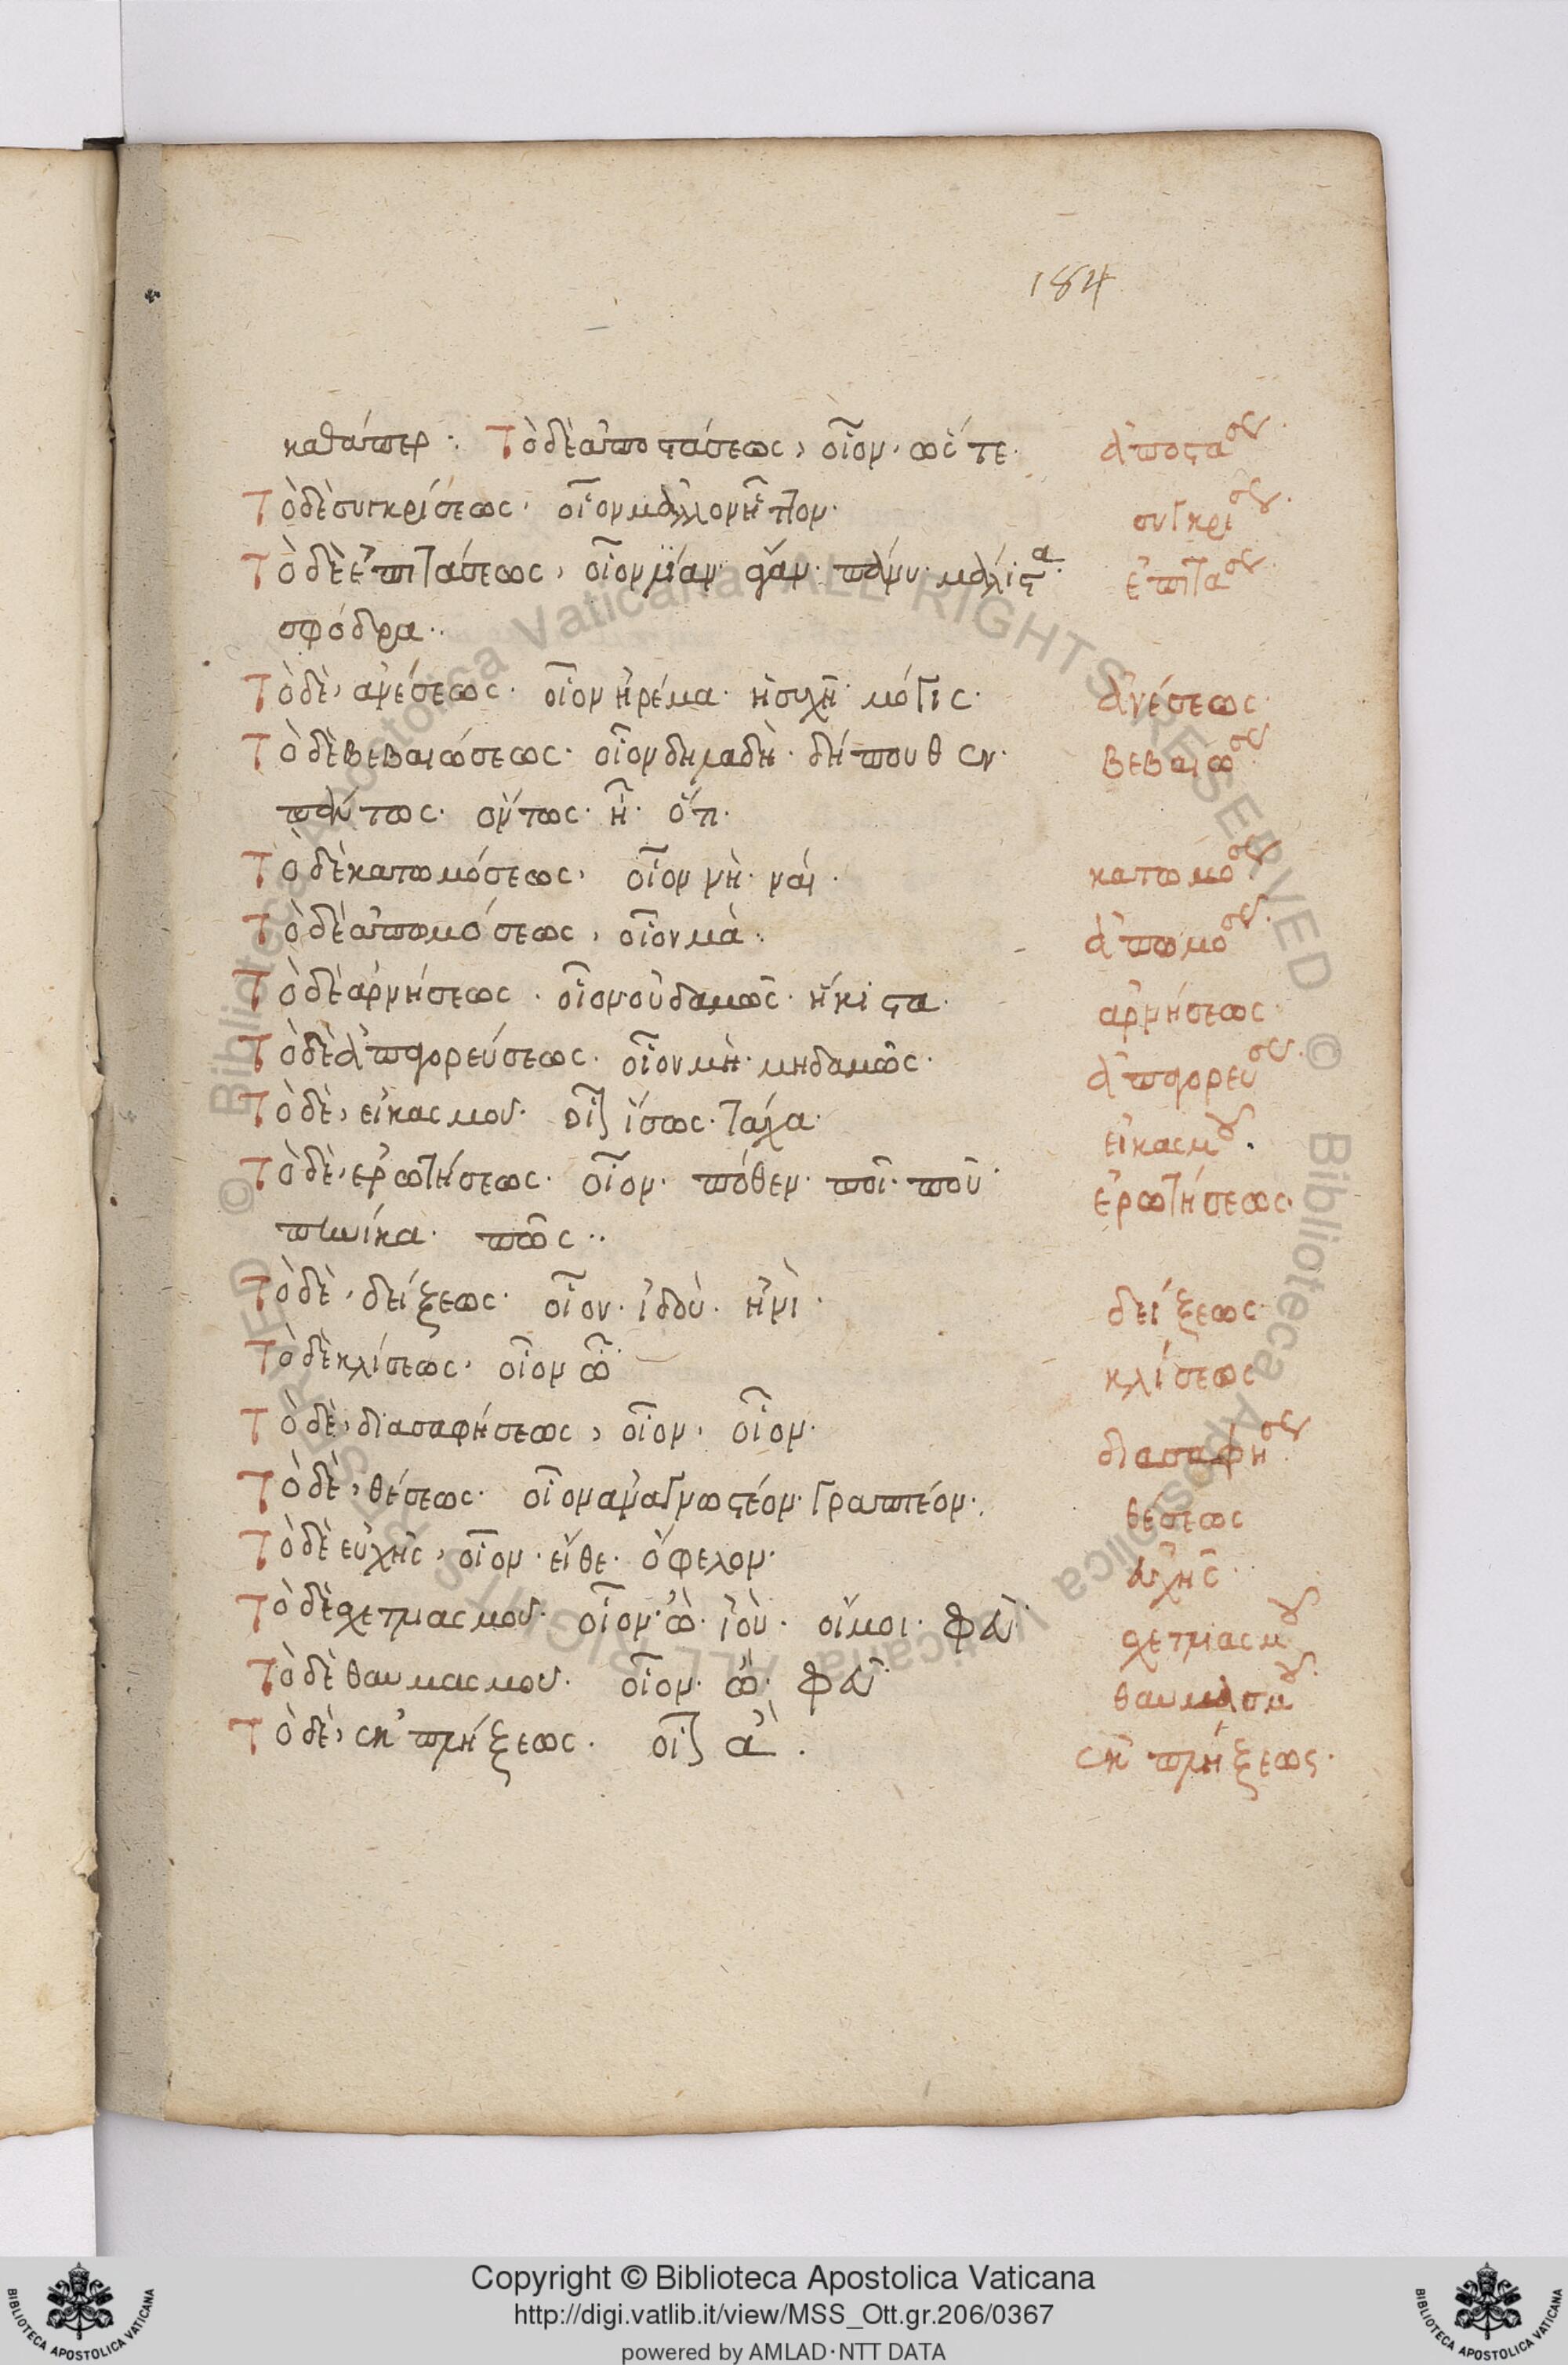 184
καθάπερ· Τὸ δὲ ἀποτάσεως, οἷον· ὥστε·
ἀποτάσεως
Τὸ δὲ συγκρίσεως· οἷον μᾶλλον ἧττον·
συγκρίσεως
Τὸ δὲ ἐπιτάσεως, οἷον λίαν· ἄγαν· πάνυ· μάλιστα·
ἐπιτάσεως
σφόδρα··
Τὸ δὲ ἀνέσεως· οἷον ἠρέμα· ἡσυχῆ· μόγις·
ἀνέσεως
Τὸ δὲ βεβαιώσεως· οἷον δηλαδὴ· δήπουθεν·
βεβαιώσεως
πάντως· ὄντως· ἦ· ὅτι·
Τὸ δὲ κατωμόσεως, οἷον νὴ· ναί·
κατωμόσεως
Τὸ δὲ ἀπωμόσεως, οἷον μὰ·
ἀπωμόσεως
Τὸ δὲ ἀρνήσεως· οἷον οὐδαμῶς· ἥκιστα·
ἀρνήσεως
Τὸ δὲ ἀπαγορεύσεως· οἷον μὴ· μηδαμῶς·
ἀπαγορεύσεως
Τὸ δὲ εἰκασμοῦ· οἷον ἴσως· τάχα·
εἰκασμοῦ·
Τὸ δὲ ἐρωτήσεως· οἷον· πόθεν· ποῖ· ποῦ·
ἐρωτήσεως·
πηνίκα· πῶς··
Τὸ δὲ δείξεως· οἷον· ἰδοὺ· ἠνὶ·
δείξεως
Τὸ δὲ κλίσεως, οἷον ὦ
κλίσεως
Τὸ δὲ διασαφήσεως, οἷον, οἷον·
διασαφήσεως
Τὸ δὲ θέσεως· οἷον ἀναγνωστέον· γραπτέον·
θέσεως
Τὸ δὲ εὐχῆς, οἷον· εἴθε· ὄφελον·
εὐχῆς
Τὸ δὲ σχετλιασμοῦ· οἷον· ὢ· ἰοὺ· οἴμοι· φεῦ·
σχετλιασμοῦ
Τὸ δὲ θαυμασμοῦ· οἷον· ὢ· φεῦ
θαυμασμοῦ
Τὸ δὲ ἐκπλήξεως· οἷον ἆ·
ἐκπλήξεως·
Copyright © Biblioteca Apostolica Vaticana
http://digi.vatlib.it/view/MSS_Ott.gr.206/0367
powered by AMLAD·NTT DATA